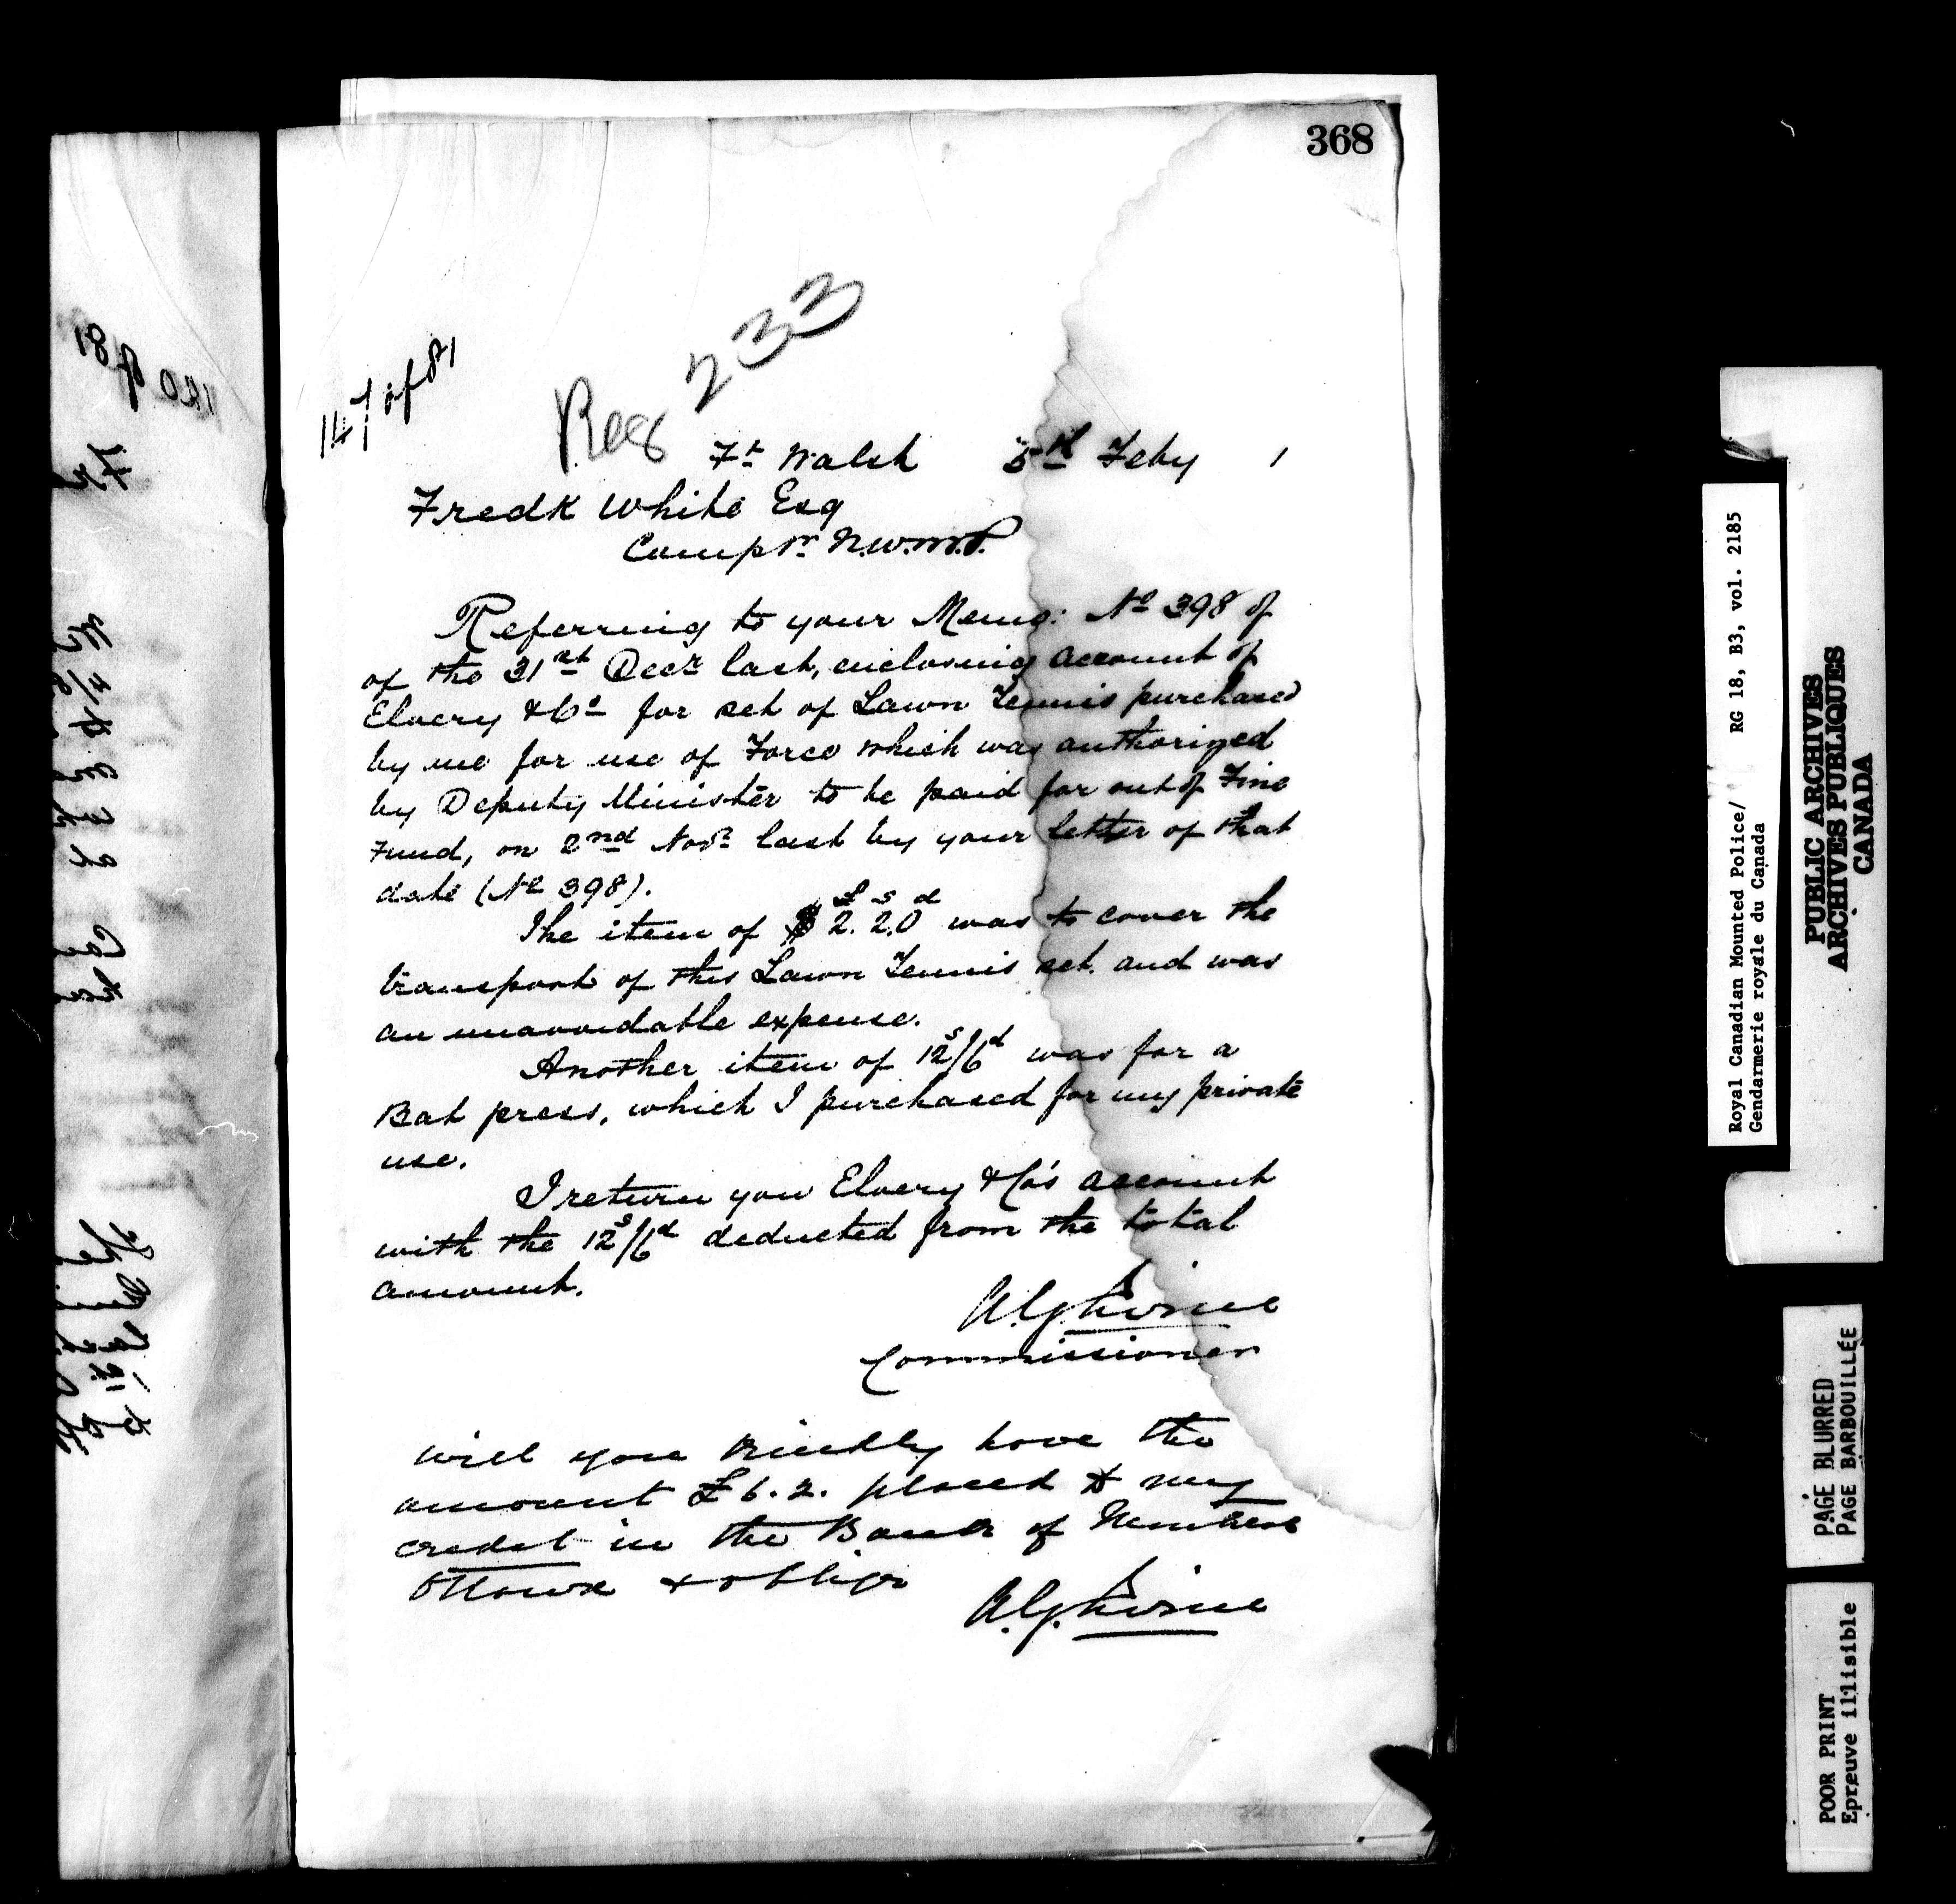 368
147 of 81
Reg 233
Ft Walsh 5th Feby 1
Fredk White Esq
Comptr N.W.M.P.
Referring to your Memo: No 398 of
of the 31st Decr last, enclosing account of
Elvery & Co for set of Lawn Tennis purchased
by me for use of Force which was authorized
by Deputy Minister to be paid for out of Fine
Fund, on 2nd Novr last by your letter of that
date (No 398).
The item of £2. s2. d0 was to cover the
transport of this Lawn Tennis set. and was
an unavoidable expense.
Another item of 12s/6d was for a
Bat press, which I purchased for my private
use.
I return you Elvery & Co's account
with the 12s/6d deducted from the total
amount.
A.G. Irvine
Commissioner
will you kindly have the
amount £6.2. placed to my
credit in the Bank of Montreal
Ottawa & oblige
A.G. Irvine
Royal Canadian Mounted Police/ RG 18, B3, vol. 2185
Gendarmerie royale du Canada
PUBLIC ARCHIVES
ARCHIVES PUBLIQUES
CANADA
PAGE BLURRED
PAGE BARBOUILLÉE
POOR PRINT
Epreuve illisible